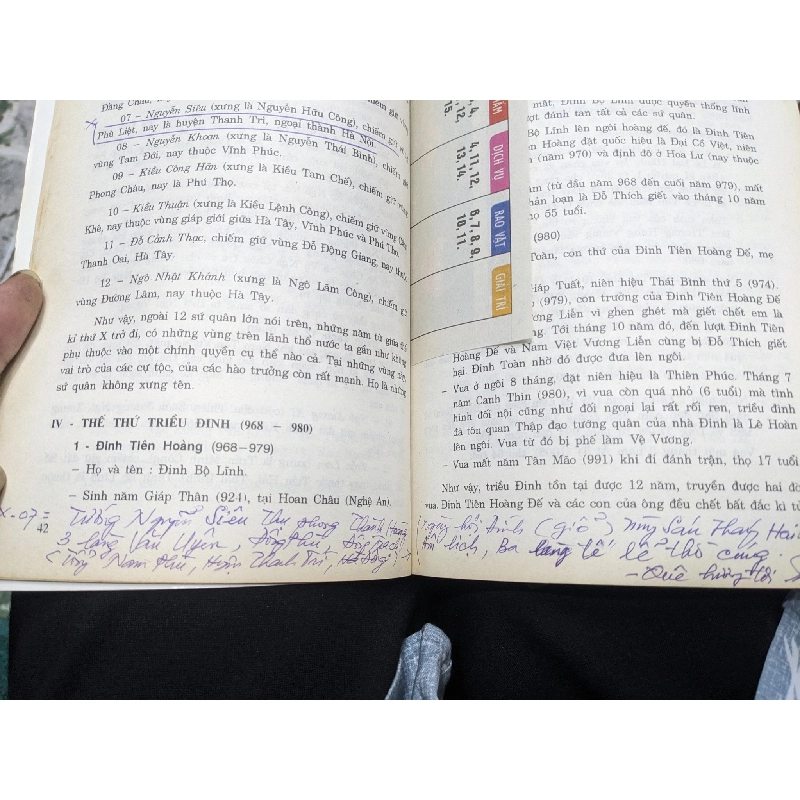 Đằng Châu,
07 – Nguyễn Siêu (xưng là Nguyễn Hữu Công), chiếm giữ
Phù Liệt, nay là huyện Thanh Trì, ngoại thành Hà Nội.
08 – Nguyễn Khoan (xưng là Nguyễn Thái Bình), chiếm
vùng Tam Đới, nay thuộc Vĩnh Phúc.
09 – Kiều Công Hãn (xưng là Kiều Tam Chế), chiếm giữ
Phong Châu, nay là Phú Thọ.
10 – Kiều Thuận (xưng là Kiều Lệnh Công), chiếm giữ vùng
Khê, nay thuộc vùng giáp giới giữa Hà Tây, Vĩnh Phúc và Phú Thọ.
11 – Đỗ Cảnh Thạc, chiếm giữ vùng Đỗ Động Giang, nay thuộc
Thanh Oai, Hà Tây.
12 – Ngô Nhật Khánh (xưng là Ngô Lãm Công), chiếm giữ
vùng Đường Lâm, nay thuộc Hà Tây.
Như vậy, ngoài 12 sứ quân lớn nói trên, những năm từ giữa thế
kỉ thứ X trở đi, có những vùng trên lãnh thổ nước ta gần như không
phụ thuộc vào một chính quyền cụ thể nào cả. Tại những vùng
vai trò của các cự tộc, của các hào trưởng còn rất mạnh. Họ là những
sứ quân không xưng tên.
IV - THẾ THỨ TRIỀU ĐINH (968 – 980)
1 - Đinh Tiên Hoàng (968–979)
– Họ và tên : Đinh Bộ Lĩnh.
– Sinh năm Giáp Thân (924), tại Hoan Châu (Nghệ An).
42
X-07 = Tướng Nguyễn Siêu Thu phong Thành Hoàng
3 làng Văn Uyên, Đông Phù,
Nam Phù, Huyện Thanh Trì, Hà Đông
4,
12,
15.
DỊCH VỤ
4, 11, 12,
13, 14.
RAO VẶT
6, 7, 8, 9,
10, 11.
GIẢI TRÍ
mất, Đinh Bộ Lĩnh được quyền thống lĩnh
đánh tan tất cả các sứ quân.
Bộ Lĩnh lên ngôi hoàng đế, đó là Đinh Tiên
Hoàng đặt quốc hiệu là Đại Cồ Việt, niên
(năm 970) và định đô ở Hoa Lư (nay thuộc
(từ đầu năm 968 đến cuối năm 979), mất
nhân loạn là Đỗ Thích giết vào tháng 10 năm
thọ 55 tuổi.
(980)
Toàn, con thứ của Đinh Tiên Hoàng Đế, mẹ
Giáp Tuất, niên hiệu Thái Bình thứ 5 (974).
(979), con trưởng của Đinh Tiên Hoàng Đế
Vương Liễn vì ghen ghét mà giết chết em là
Tới tháng 10 năm đó, đến lượt Đinh Tiên
Hoàng Đế và Nam Việt Vương Liễn cũng bị Đỗ Thích giết
hại. Đinh Toàn nhờ đó được đưa lên ngôi.
– Vua ở ngôi 8 tháng, đặt niên hiệu là Thiên Phúc. Tháng 7
năm Canh Thìn (980), vì vua còn quá nhỏ (6 tuổi) mà tình
hình đối nội cũng như đối ngoại lại rất rối ren, triều đình
đã tôn quan Thập đạo tướng quân của nhà Đinh là Lê Hoàn
lên ngôi. Vua từ đó bị phế làm Vệ Vương.
– Vua mất năm Tân Mão (991) khi đi đánh trận, thọ 17 tuổi.
Như vậy, triều Đinh tồn tại được 12 năm, truyền được hai đời
vua. Đinh Tiên Hoàng Đế và các con của ông đều chết bất đắc kì tử.
(giỗ)
lịch, Ba làng tế lễ thờ cúng.
– Quê hương tôi